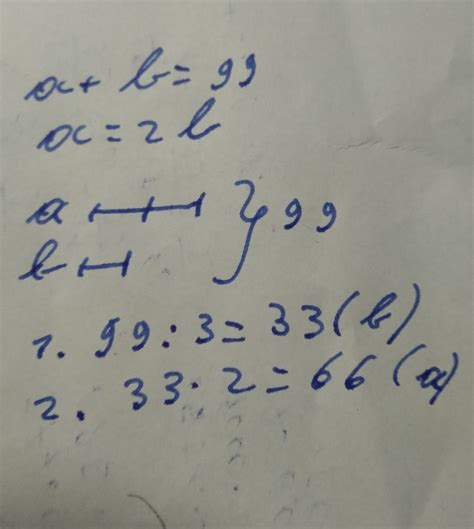 a + b = 99
a = 2b
a } 99
b
1. 99 : 3 = 33 (b)
2. 33 · 2 = 66 (a)